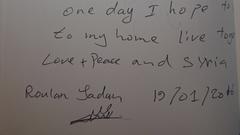 one day I hope to
to my home live tog
Love + Peace and Syria
Roulan 19/01/20